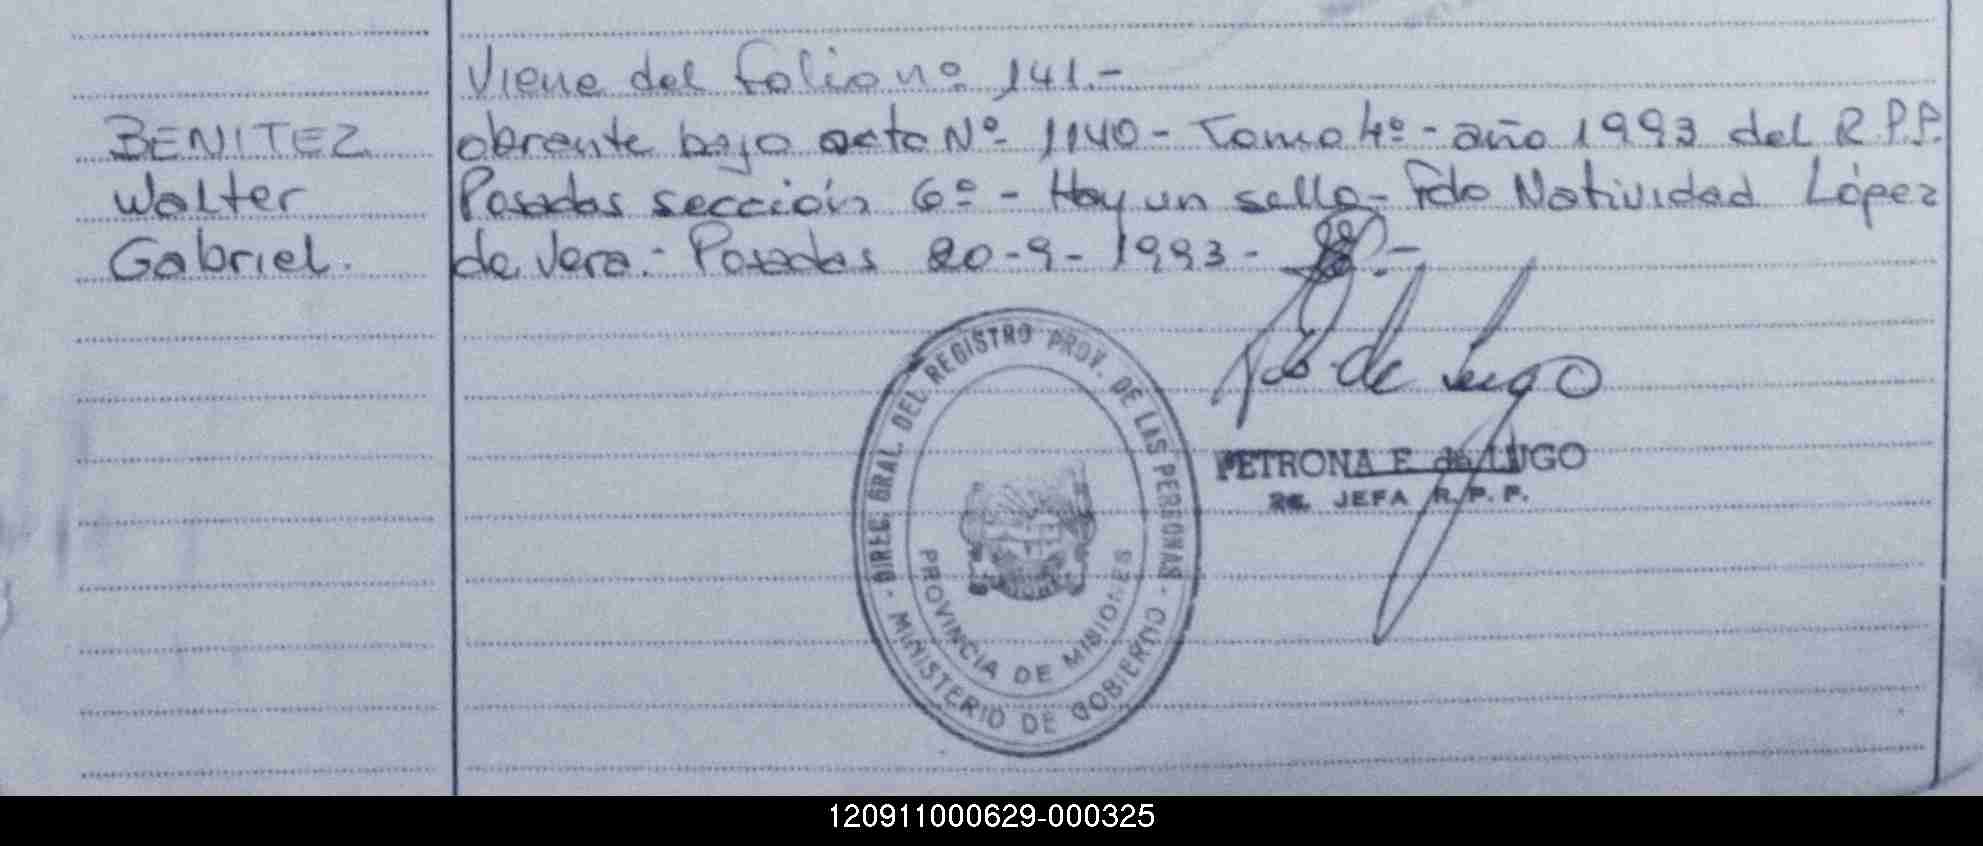 Viene del folio nº 141.-
BENITEZ
Walter
Gabriel.
obrante bajo acta Nº 1140 - Tomo 4º - año 1993 del R.P.P.
Posadas sección 6º - Hay un sello - Fdo Natividad López
de Vera.- Posadas 20-9-1993 -
de Lugo
PETRONA E. de LUGO
JEFA R.P.P.
- DIREC. GRAL. DEL REGISTRO PROV. DE LAS PERSONAS -
MINISTERIO DE GOBIERNO
PROVINCIA DE MISIONES
120911000629-000325